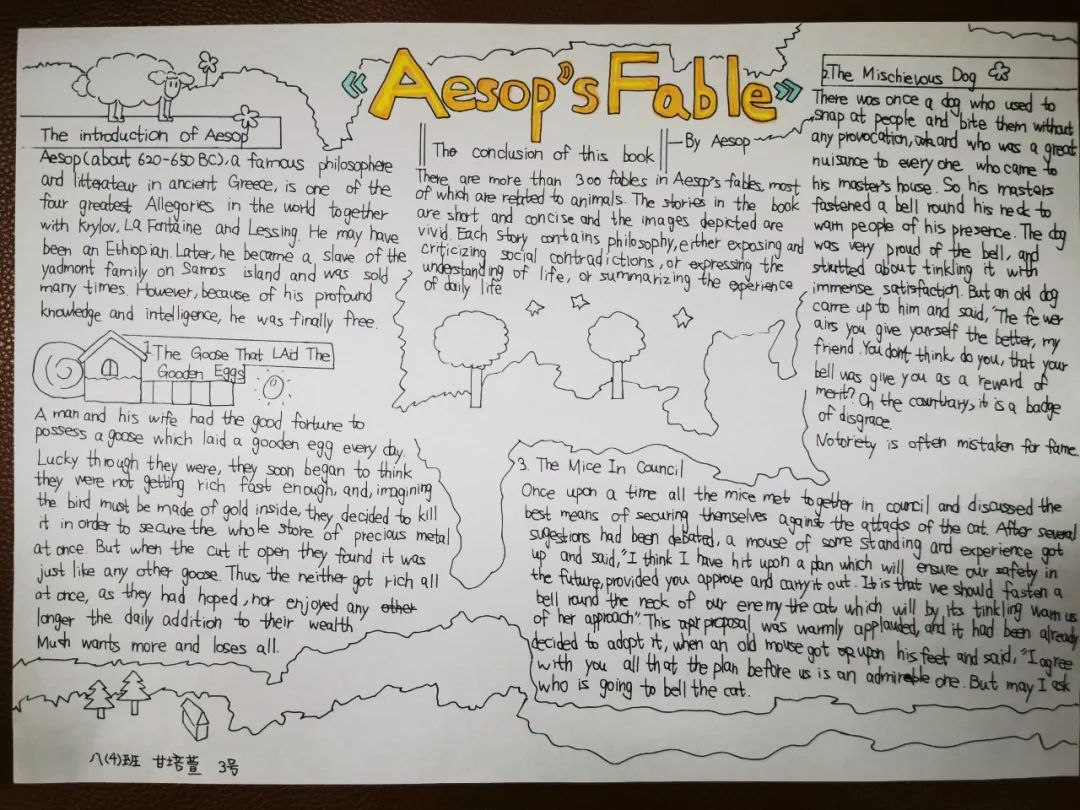 《Aesop's Fable》
—By Aesop
The introduction of Aesop
Aesop(about 620-650 BC), a famous philosophere
and litterateur in ancient Greece, is one of the
four greatest Allegories in the world together
with Krylov, LA Fantaine and Lessing. He may have
been an Ethiopian. Later, he became a slave of the
yadmont family on Samos island and was sold
many times. However, because of his profound
knowledge and intelligence, he was finally free.
1. The Goose That LAid The
Gooden Eggs
A man and his wife had the good fortune to
possess a goose which laid a gooden egg every day.
Lucky through they were, they soon began to think
they were not getting rich fast enough, and, imagining
the bird must be made of gold inside, they decided to kill
it in order to secure the whole store of precious metal
at once. But when the cut it open they found it was
just like any other goose. Thus, the neither got rich all
at once, as they had hoped, nor enjoyed any other
longer the daily addition to their wealth
Mush wants more and loses all.
The conclusion of this book
There are more than 300 fables in Aesop's fables, most
of which are related to animals. The stories in the book
are short and concise and the images depicted are
vivid. Each story contains philosophy, either exposing and
criticizing social contradictions, or expressing the
understanding of life, or summarizing the experience
of daily life
2. The Mischievous Dog
There was once a dog who used to
snap at people and bite them without
any provocation, and who was a great
nuisance to every one who came to
his master's house. So his masters
fastened a bell round his neck to
warn people of his presence. The dog
was very proud of the bell, and
strutted about tinkling it with
immense satisfaction. But an old dog
came up to him and said, "The fewer
airs you give yourself the better, my
friend. You don't think, do you, that your
bell was give you as a reward of
merit? On the countrary, it is a badge
of disgrace.
Notoriety is often mistaken for fame.
3. The Mice In Council
Once upon a time all the mice met together in council and discussed the
best means of securing themselves against the attacks of the cat. After several
sugestions had been debated, a mouse of some standing and experience got
up and said, "I think I have hit upon a plan which will ensure our safety in
the future, provided you approve and carry it out. It is that we should fasten a
bell round the neck of our enemy the cat, which will by its tinkling warn us
of her approach". This proposal was warmly applauded, and it had been already
decided to adopt it, when an old mouse got upon his feet and said, "I agree
with you all that the plan before us is an admirable one. But may I ask
who is going to bell the cat.
八(4)班 甘培萱 3号